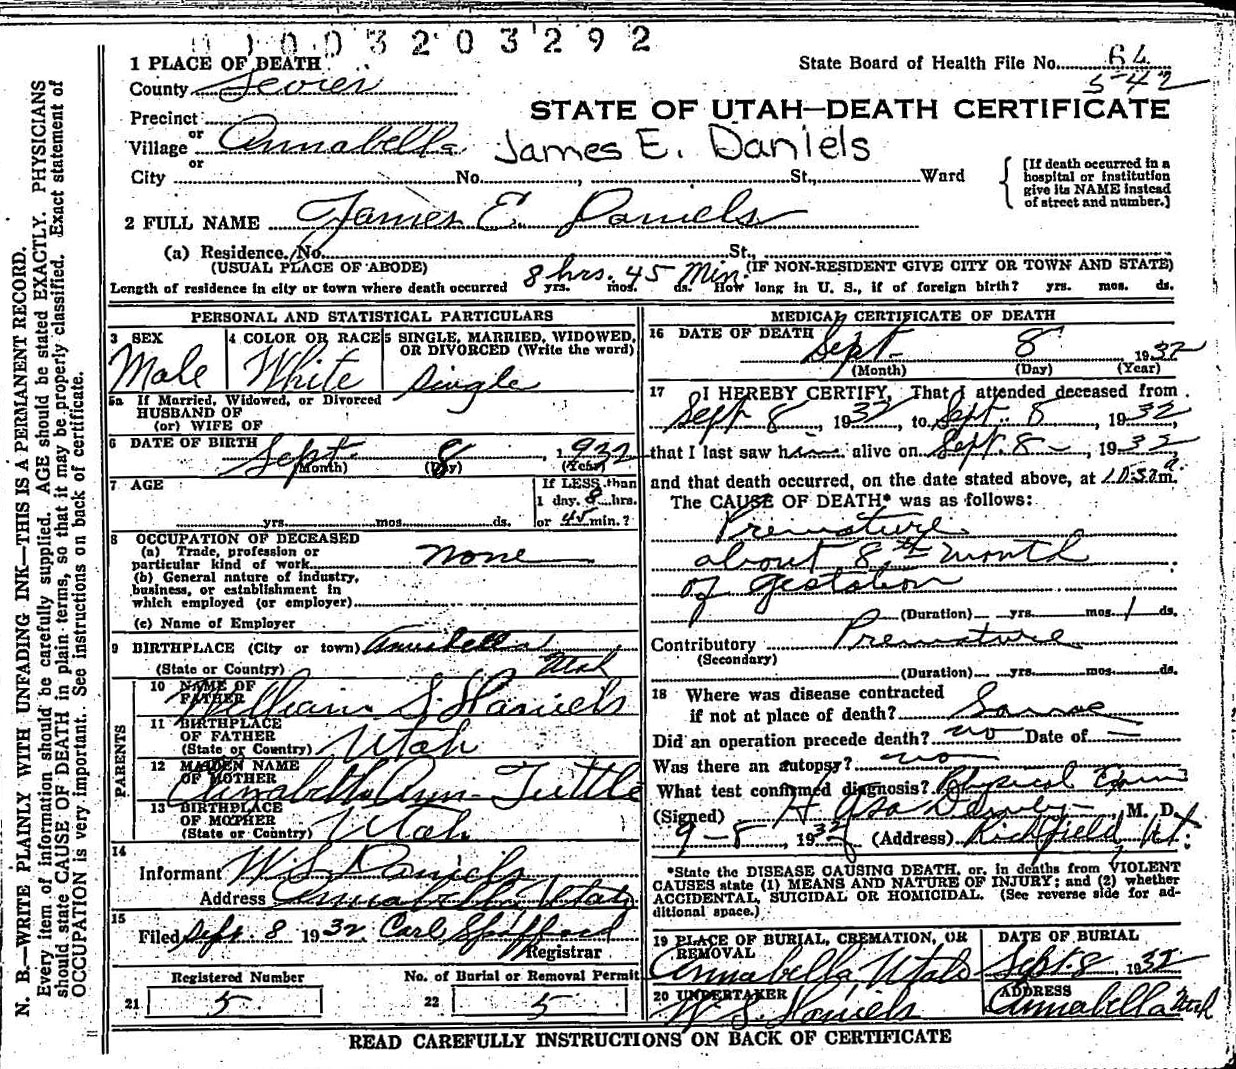 0003203292
1 PLACE OF DEATH
State Board of Health File No. 64
5-42
County Sevier
STATE OF UTAH—DEATH CERTIFICATE
Precinct
or
Village Annabella
James E. Daniels
or
City No. , St., Ward
[If death occurred in a
hospital or institution
give its NAME instead
of street and number.]
2 FULL NAME James E. Daniels
(a) Residence. No. St.,
(USUAL PLACE OF ABODE) (IF NON-RESIDENT GIVE CITY OR TOWN AND STATE)
8 hrs. 45 Min.
Length of residence in city or town where death occurred yrs. mos. ds. How long in U. S., if of foreign birth? yrs. mos. ds.
PERSONAL AND STATISTICAL PARTICULARS
3 SEX
Male
4 COLOR OR RACE
White
5 SINGLE, MARRIED, WIDOWED,
OR DIVORCED (Write the word)
Single
5a If Married, Widowed, or Divorced
HUSBAND OF
(or) WIFE OF
6 DATE OF BIRTH
Sept. 8, 1932
(Month) (Day) (Year)
7 AGE
yrs. mos. ds.
If LESS than
1 day, 8 hrs.
or 45 min.?
8 OCCUPATION OF DECEASED
(a) Trade, profession or
particular kind of work none
(b) General nature of industry,
business, or establishment in
which employed (or employer)
(c) Name of Employer
9 BIRTHPLACE (City or town) Annabella
(State or Country) Utah
PARENTS
10 NAME OF
FATHER William S. Daniels
11 BIRTHPLACE
OF FATHER
(State or Country) Utah
12 MAIDEN NAME
OF MOTHER Ann Tuttle
13 BIRTHPLACE
OF MOTHER
(State or Country) Utah
14
Informant W. S. Daniels
Address Annabella Utah
15
Filed Sept. 8 1932. Carl Spafford
Registrar
Registered Number
21 5
No. of Burial or Removal Permit
22 5
MEDICAL CERTIFICATE OF DEATH
16 DATE OF DEATH
Sept. 8 1932
(Month) (Day) (Year)
17 I HEREBY CERTIFY, That I attended deceased from
Sept 8, 1932, to Sept. 8, 1932
that I last saw him alive on Sept. 8, 1932
and that death occurred, on the date stated above, at m.
The CAUSE OF DEATH* was as follows:
Premature
about 8th month
of gestation
(Duration) yrs. mos. 1 ds.
Contributory Premature
(Secondary)
(Duration) yrs. mos. ds.
18 Where was disease contracted
if not at place of death? Same
Did an operation precede death? no Date of —
Was there an autopsy? no
What test confirmed diagnosis? Physical Exam
(Signed) H. Asa Dewey, M. D.
9-8, 1932 (Address) Richfield Ut.
*State the DISEASE CAUSING DEATH, or, in deaths from VIOLENT
CAUSES state (1) MEANS AND NATURE OF INJURY; and (2) whether
ACCIDENTAL, SUICIDAL OR HOMICIDAL. (See reverse side for ad-
ditional space.)
19 PLACE OF BURIAL, CREMATION, OR
REMOVAL
Annabella, Utah
DATE OF BURIAL
Sept 8, 1932
20 UNDERTAKER
W. S. Daniels
ADDRESS
Annabella Utah
READ CAREFULLY INSTRUCTIONS ON BACK OF CERTIFICATE
N. B.—WRITE PLAINLY WITH UNFADING INK—THIS IS A PERMANENT RECORD.
Every item of information should be carefully supplied. AGE should be stated EXACTLY. PHYSICIANS
should state CAUSE OF DEATH in plain terms, so that it may be properly classified. Exact statement of
OCCUPATION is very important. See instructions on back of certificate.